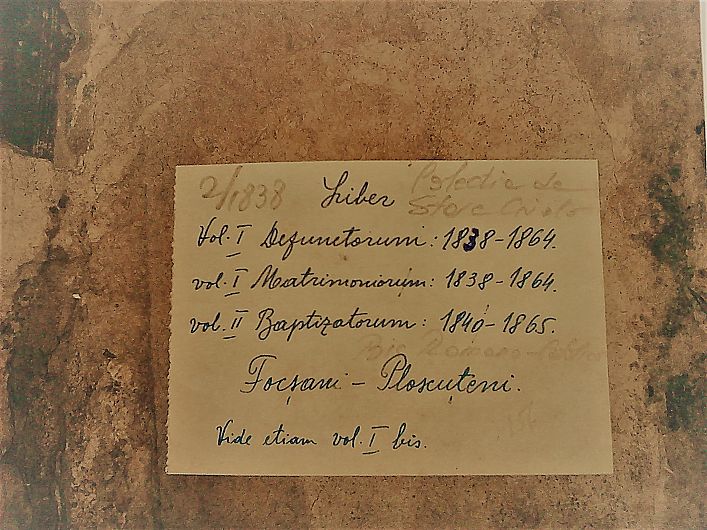 2/1838 Liber Colecția de
Stare Civilă
Vol. I Defunctorum: 1838-1864.
vol. I Matrimoniorum: 1838-1864.
vol. II Baptizatorum: 1840-1865.
Bis. Romano-Catolică
Focșani - Ploscuțeni.
Vide etiam vol. I bis.